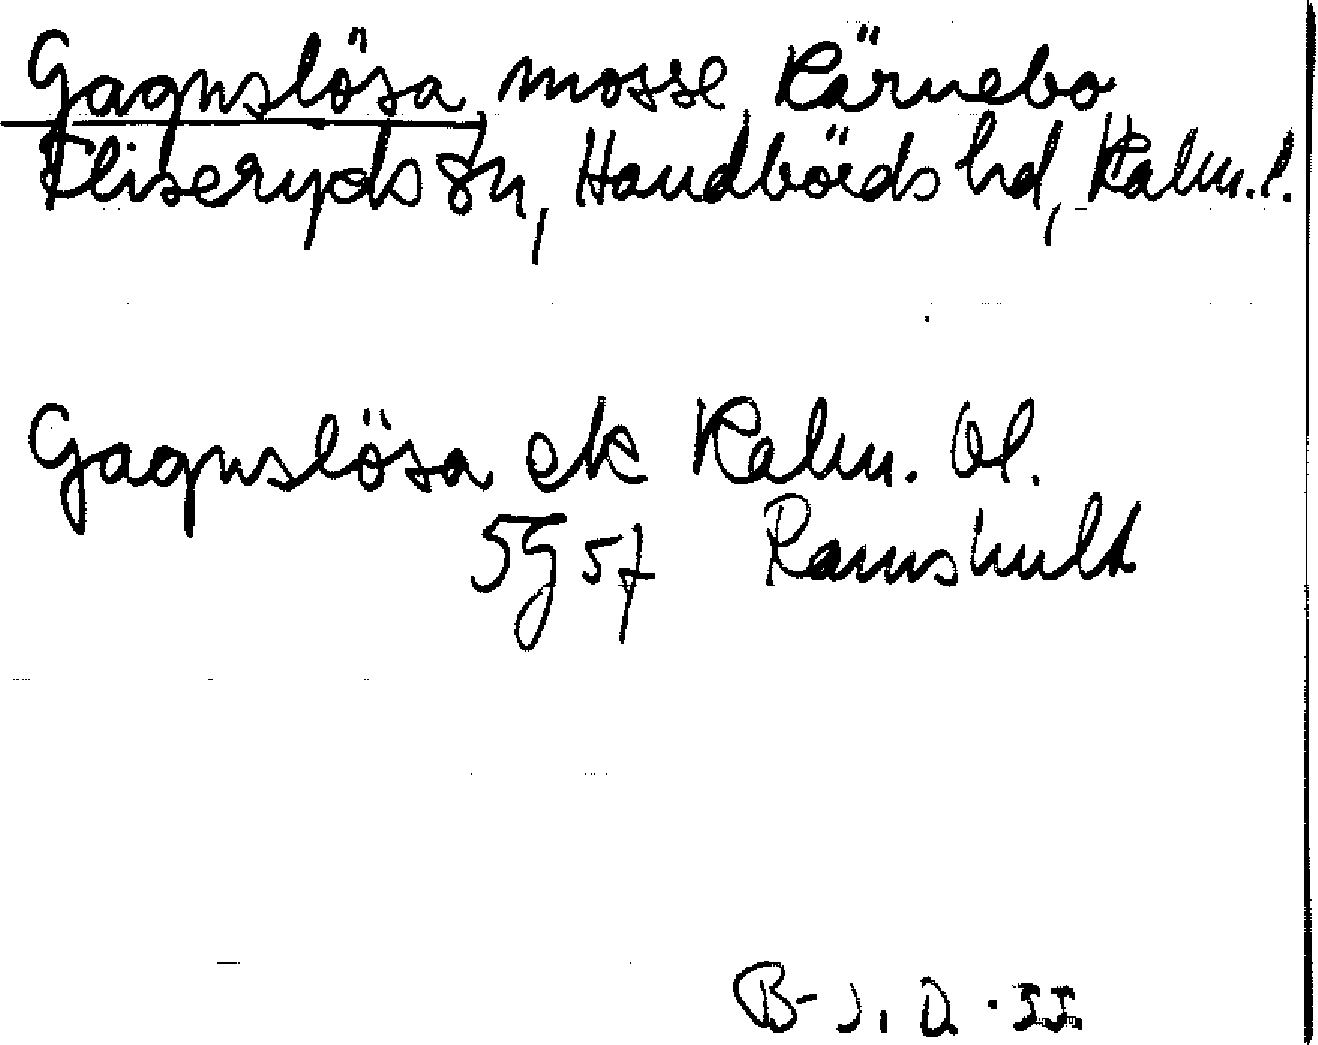 Gagnslösa, mosse, Kärnebo
Fliseryds sn, Handbörds hd, Kalm. l.
Gagnslösa ek Kalm. öl.
5G 5f Ramshult
B-J. D. -55.